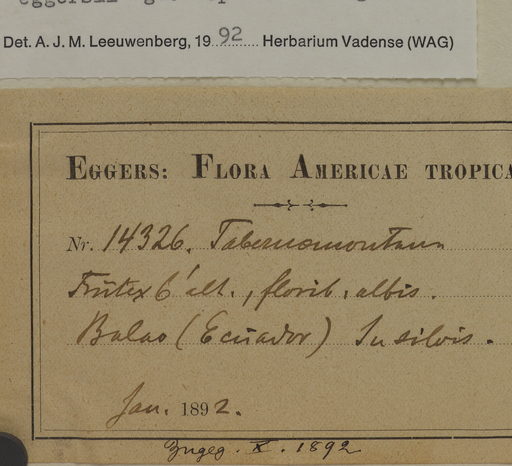 Det. A. J. M. Leeuwenberg, 1992 Herbarium Vadense (WAG)
EGGERS: FLORA AMERICAE TROPICA
Nr. 14326. Tabernæmontana
Frutex 6' alt., florib. albis.
Balao (Ecuador) In silvis.
Jan. 1892.
Zugeg. X. 1892